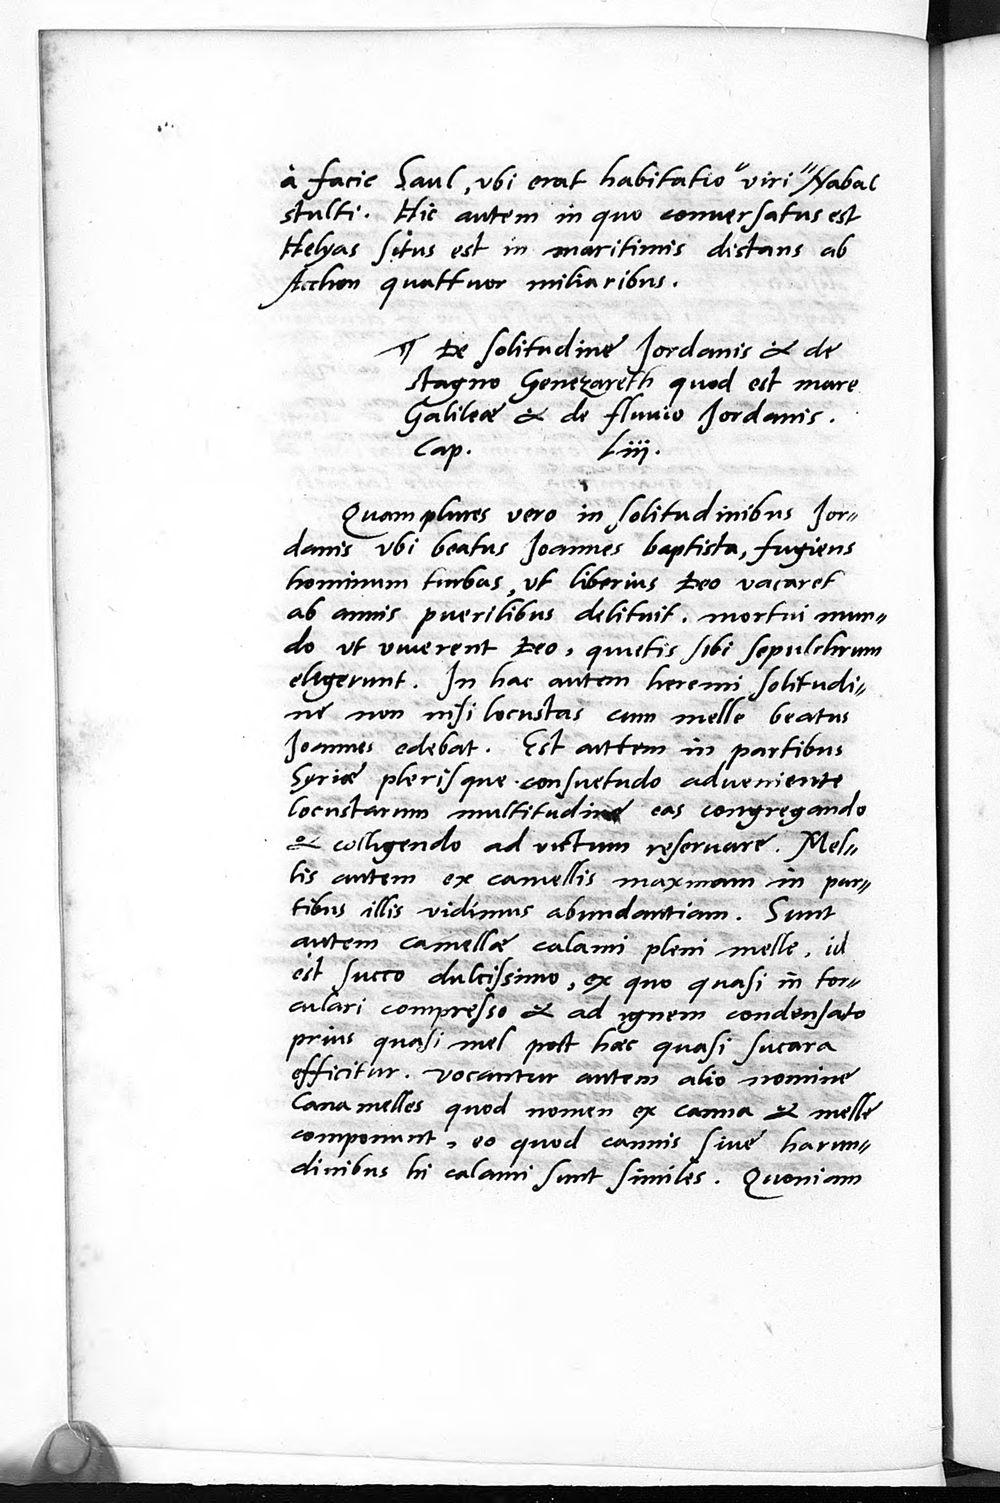 à facie Saul, vbi erat habitatio "viri" Nabal
stulti. Hic autem in quo conuersatus est
Helyas situs est in maritimis distans ab
Acchon quattuor miliaribus.
¶ De solitudine Jordanis & de
stagno Genezareth quod est mare
Galileæ & de fluuio Jordanis.
Cap. Liij.
Quamplures vero in solitudinibus Jor=
danis vbi beatus Joannes baptista, fugiens
hominum turbas, vt liberius Deo vacaret
ab annis puerilibus delituit. mortui mun=
do vt viuerent Deo, quietis sibi sepulchrum
eligerunt. In hac autem heremi solitudi=
ne non nisi locustas cum melle beatus
Joannes edebat. Est auttem in partibus
Syriæ plerisque consuetudo adueniente
locustarum multitudine eas congregando
& colligendo ad victum reseruare. Mel=
lis autem ex camellis maxmam in par=
tibus illis vidimus abundantiam. Sunt
autem camellæ calami pleni melle, id
est succo dulcissimo, ex quo quasi in tor=
culari compresso & ad ignem condensato
prius quasi mel post hæc quasi sucara
efficitur. vocantur autem alio nomine
Canamelles quod nomen ex canna & melle
componunt, eo quod cannis siue harun=
dinibus hi calami sunt similes. Quoniam